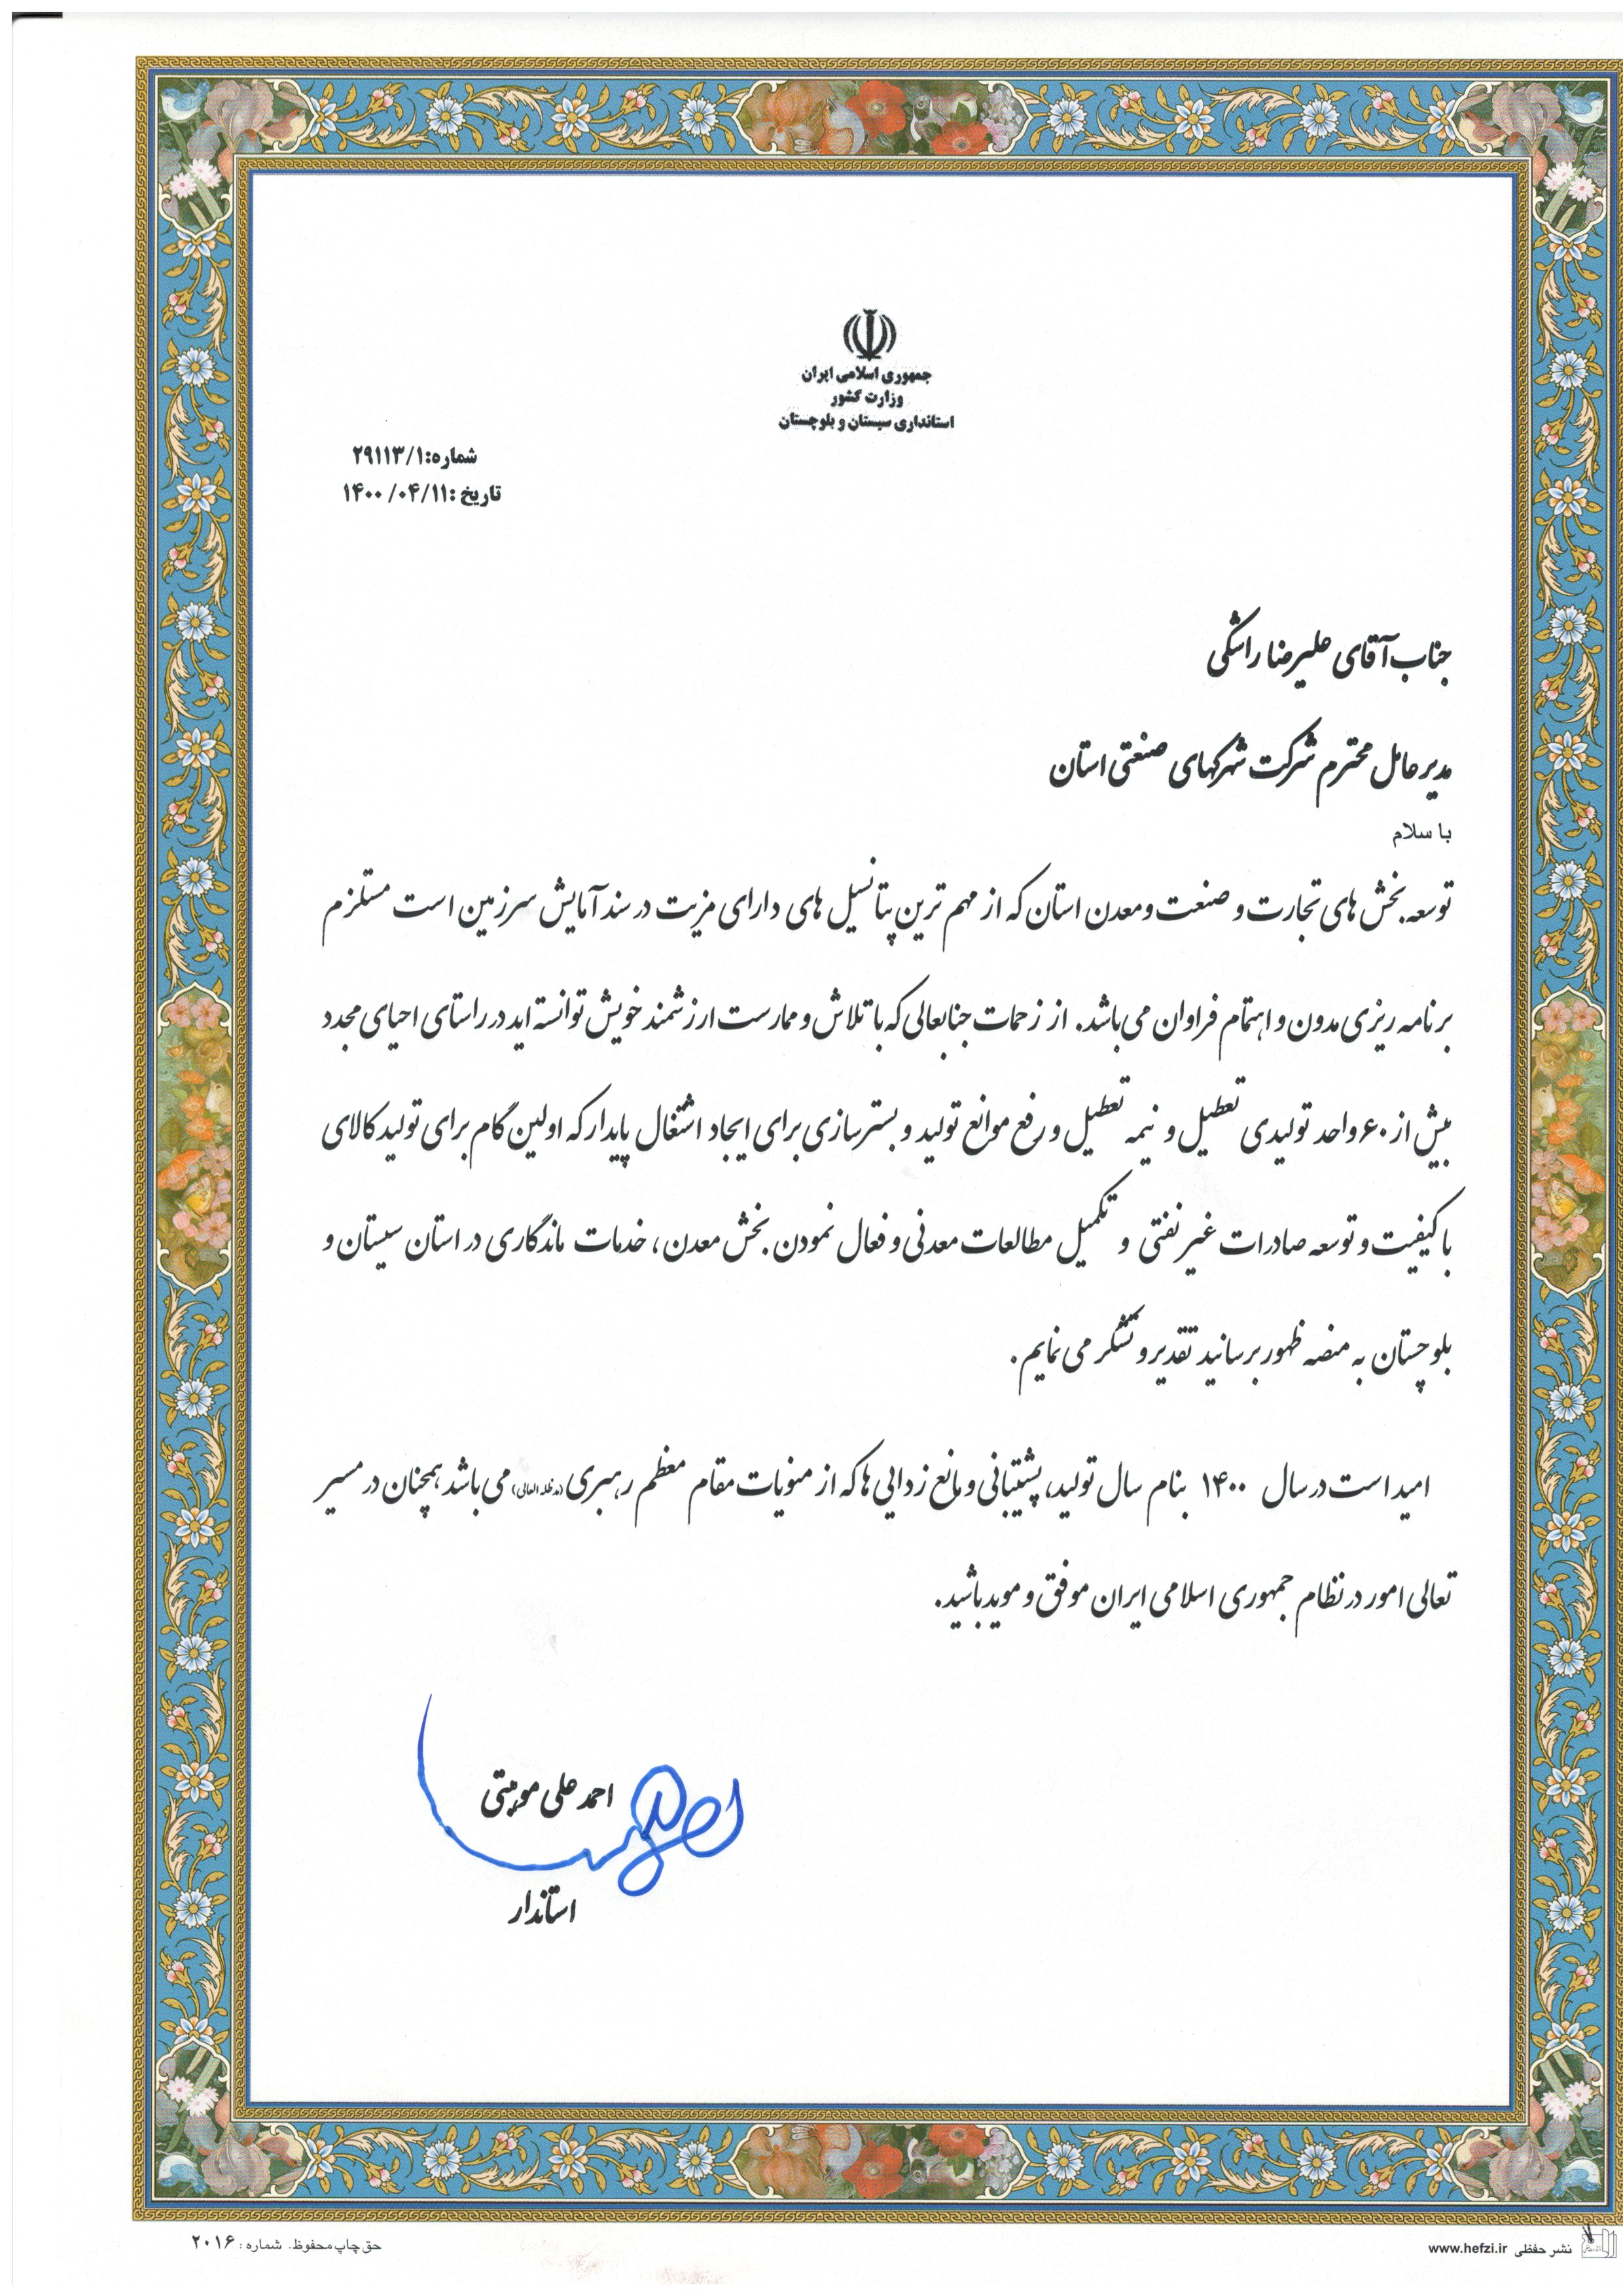 جمهوری اسلامی ایران
وزارت کشور
استانداری سیستان و بلوچستان
شماره:۲۹۱۱۳/۱
تاریخ :۱۴۰۰/۰۴/۱۱
جناب آقای علیرضا راشکی
مدیرعامل محترم شرکت شهرکهای صنعتی استان
با سلام
توسعه بخش های تجارت و صنعت و معدن استان که از مهم ترین پتانسیل های دارای مزیت در سند آمایش سرزمین است مستلزم
برنامه ریزی مدون و اهتمام فراوان می باشد. از زحمات جنابعالی که با تلاش و ممارست ارزشمند خویش توانسته اید در راستای احیای مجدد
بیش از ۶۰ واحد تولیدی تعطیل و نیمه تعطیل و رفع موانع تولید و بسترسازی برای ایجاد اشتغال پایدار که اولین گام برای تولید کالای
با کیفیت و توسعه صادرات غیر نفتی و تکمیل مطالعات معدنی و فعال نمودن بخش معدن، خدمات ماندگاری در استان سیستان و
بلوچستان به منصه ظهور برسانید تقدیر و تشکر می نمایم.
امید است در سال ۱۴۰۰ بنام سال تولید، پشتیبانی و مانع زدایی ها که از منویات مقام معظم رهبری (مدظله العالی) می باشد همچنان در مسیر
تعالی امور در نظام جمهوری اسلامی ایران موفق و موید باشید.
احمد علی موهبتی
استاندار
نشر حفظی www.hefzi.ir
حق چاپ محفوظ. شماره: ۲۰۱۶